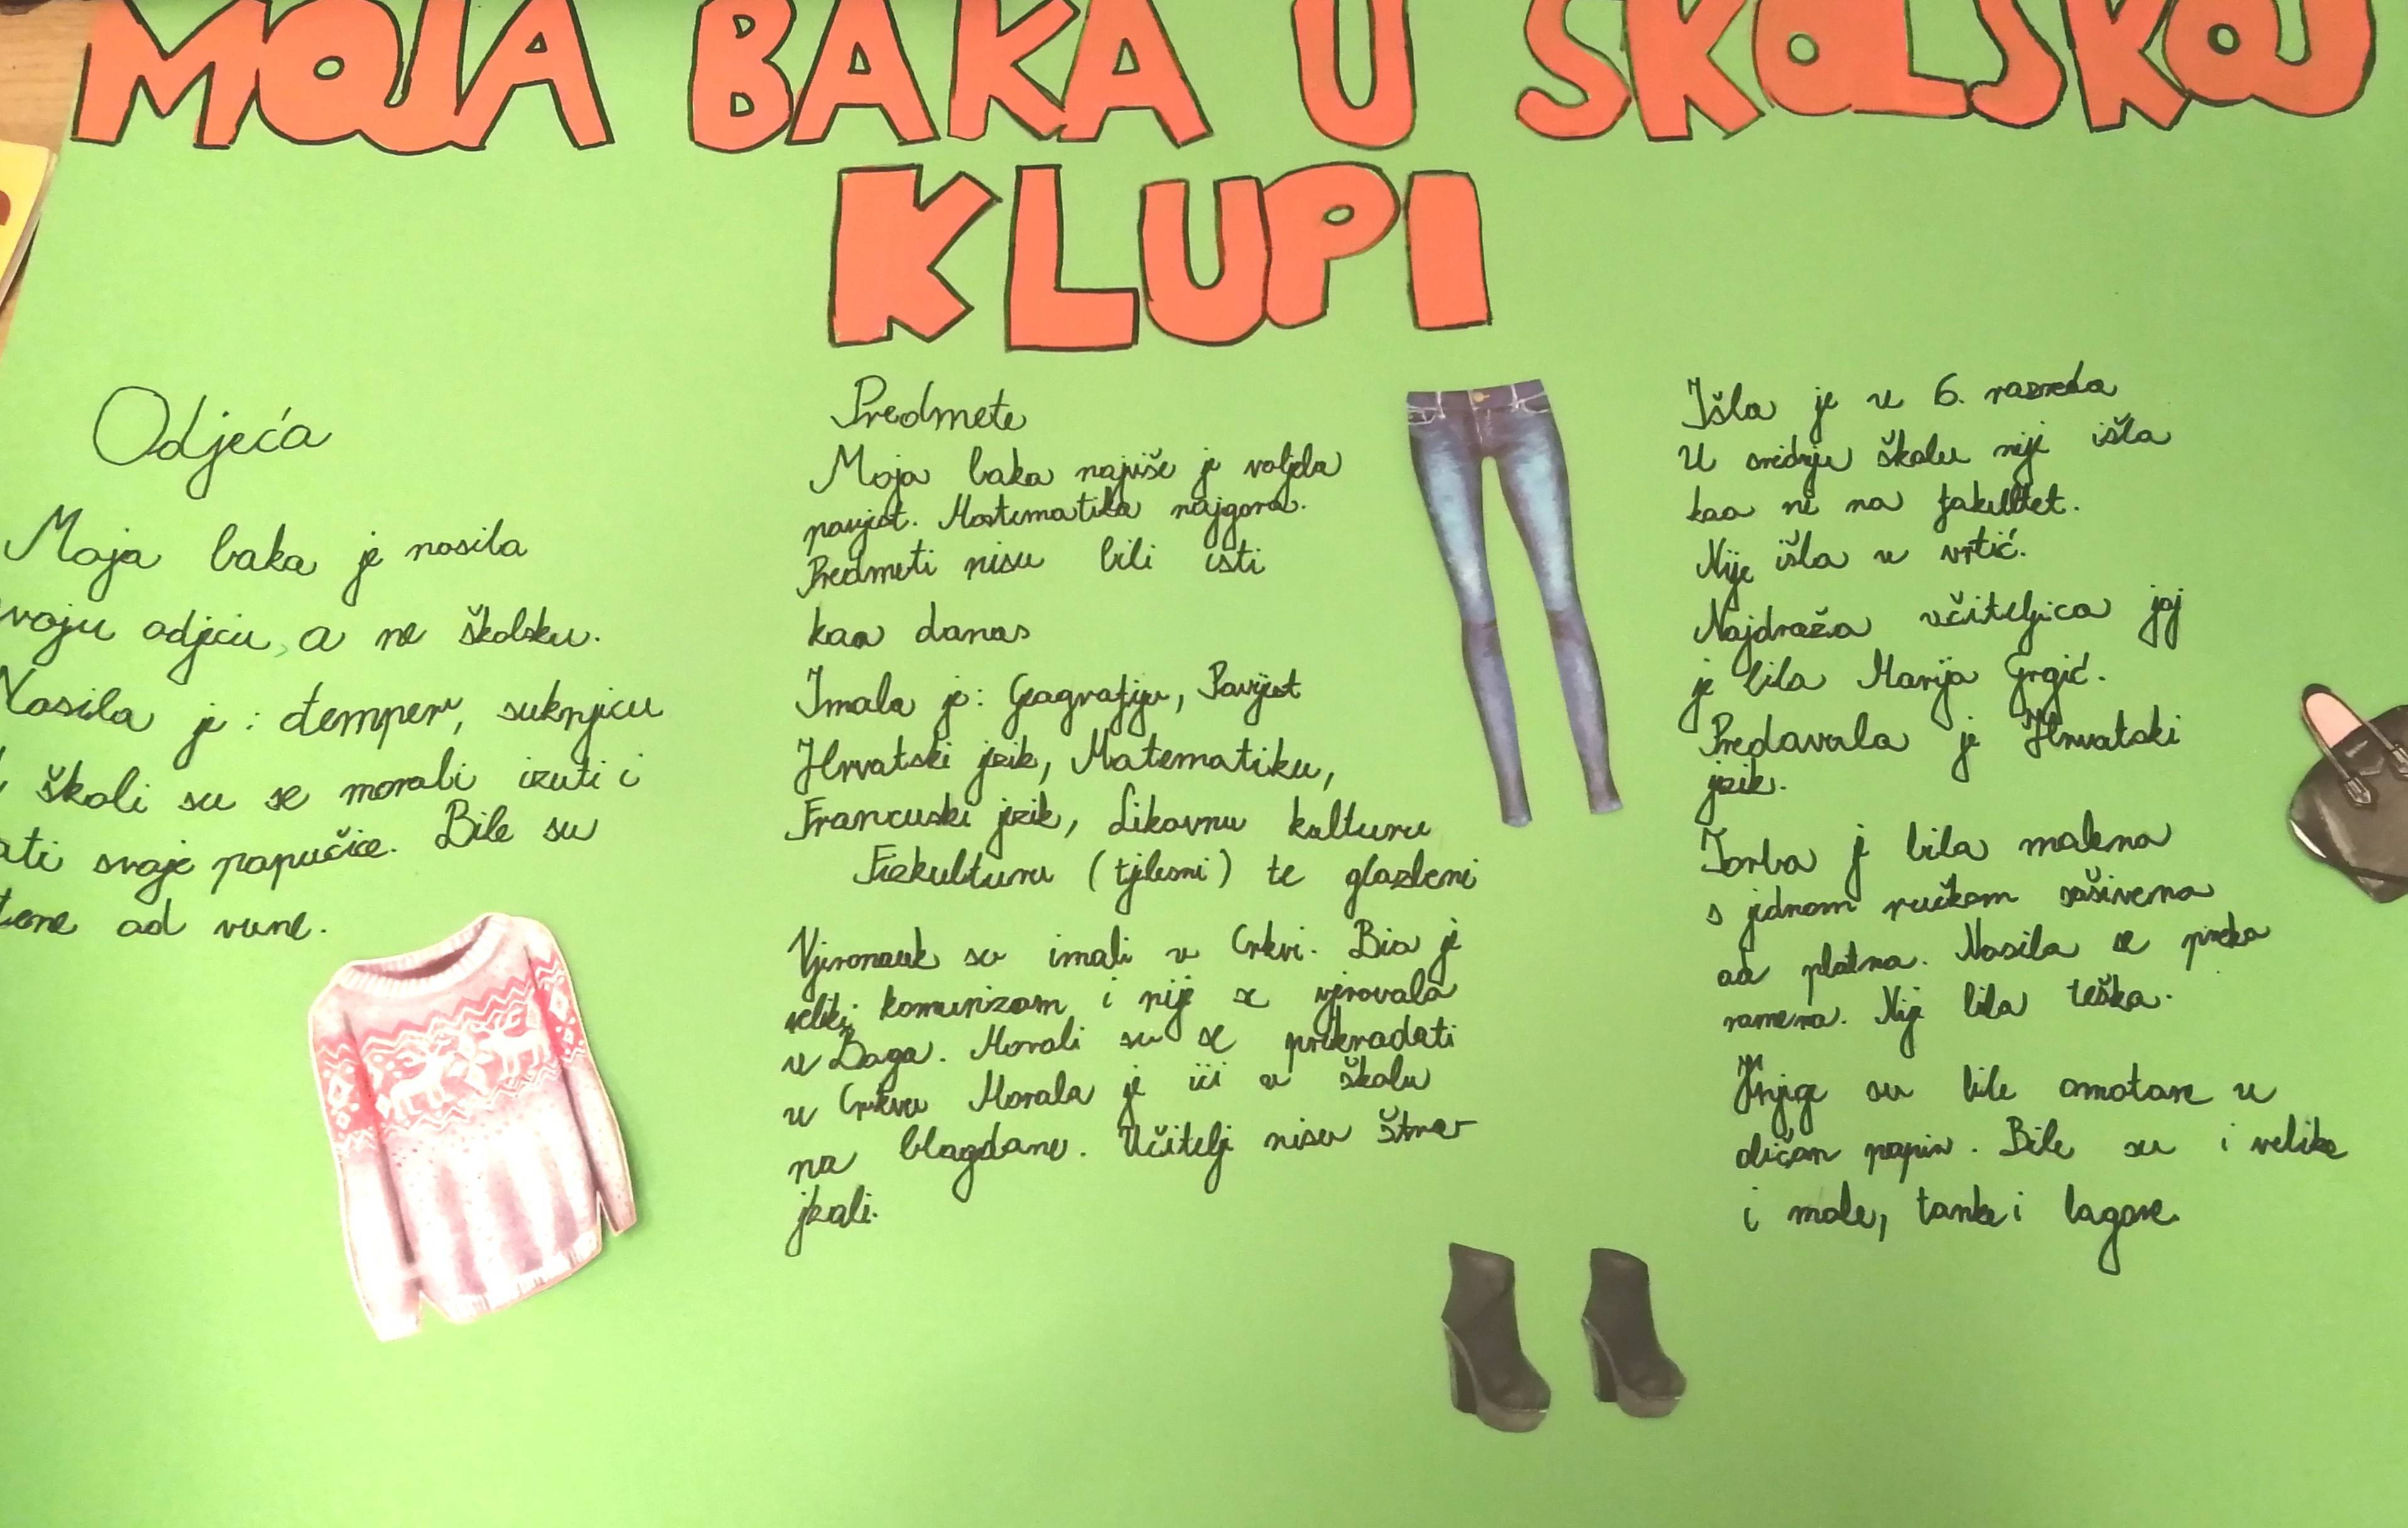 MOJA BAKA U ŠKOLSKOJ
KLUPI
Odjeća
Moja baka je nosila
svoju odjeću, a ne školsku.
Nosila je: đemper, suknjicu
U školi su se morali izuti i
svoje papučice. Bile su
od vune.
Predmete
Moja baka najviše je voljela
povjest. Matematika najgora.
Predmeti nisu bili isti
kao danas
Imala je: Geografiju, Povijest
Hrvatski jezik, Matematiku,
Francuski jezik, Likovnu kulturu
Fizkulturu (tjelesni) te glazbeni
Vjeronauk su imali u Crkvi. Bio je
veliki komunizam i nije se vjerovala
u Boga. Morali su se prikradati
u Crkvu Morala je ići u školu
na blagdane. Učitelji nisu štra-
jkali.
Išla je u 6. razreda
U srednju školu nije išla
kao ni na fakultet.
Nije išla u vrtić.
Najdraža učiteljica joj
je bila Marija Grgić.
Predavala je Hrvatski
jezik.
Torba je bila malena
s jednom ručkom sašivena
od platna. Nosila se preko
ramena. Nije bila teška.
Knjige su bile omotane u
običan papir. Bile su i velike
i male, tanke i lagane.